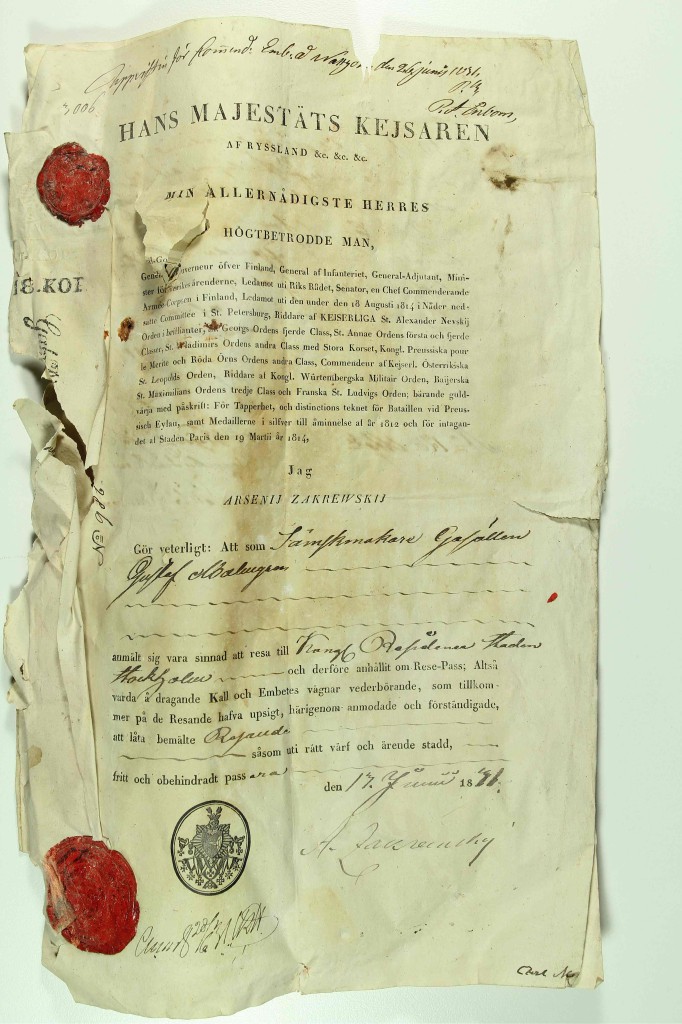 Uppvist för Kommend. Emb. å den 24 junii 1831.
HANS MAJESTÄTS KEJSAREN
AF RYSSLAND &c. &c. &c.
MIN ALLERNÅDIGSTE HERRES
HÖGTBETRODDE MAN,
General Guverneur öfver Finland, General af Infanteriet, General-Adjutant, Mini-
ster för Inrikes ärenderne, Ledamot uti Riks Rådet, Senator, en Chef Commenderande
Armée-Corpsen i Finland, Ledamot uti den under den 18 Augusti 1814 i Nåder ned-
satte Committee i St. Petersburg, Riddare af KEISERLIGA St. Alexander Nevskij
Orden i brillianter, St. Georgs Ordens fjerde Class, St. Annae Ordens första och fjerde
Classer, St. Wladimirs Ordens andra Class med Stora Korset, Kongl. Preussiska pour
le Merite och Röda Örns Ordens andra Class, Commendeur af Kejserl. Österrikiska
St. Leopolds Orden, Riddare af Kongl. Würtembergska Militair Orden, Baijerska
St. Maximilians Ordens tredje Class och Franska St. Ludvigs Orden; bärande guld-
värja med påskrift: För Tapperhet, och distinctions teknet för Bataillen vid Preus-
sisch Eylau, samt Medaillerne i silfver till åminnelse af år 1812 och för intagan-
det af Staden Paris den 19 Martii år 1814,
Jag
ARSENIJ ZAKREWSKIJ
No 986
Gör veterligt: Att som Sämskmakare Gesällen
Gustaf Malmgren
anmält sig vara sinnad att resa till Kongl. Residence Staden
Stockholm och derföre anhållit om Rese-Pass; Altså
varda å dragande Kall och Embetes vägnar vederbörande, som tillkom-
mer på de Resande hafva upsigt, härigenom anmodade och förständigade,
att låta bemälte Resande
såsom uti rätt värf och ärende stadd,
fritt och obehindradt passera
den 17 Junii 1831.
A. Zakrewsky